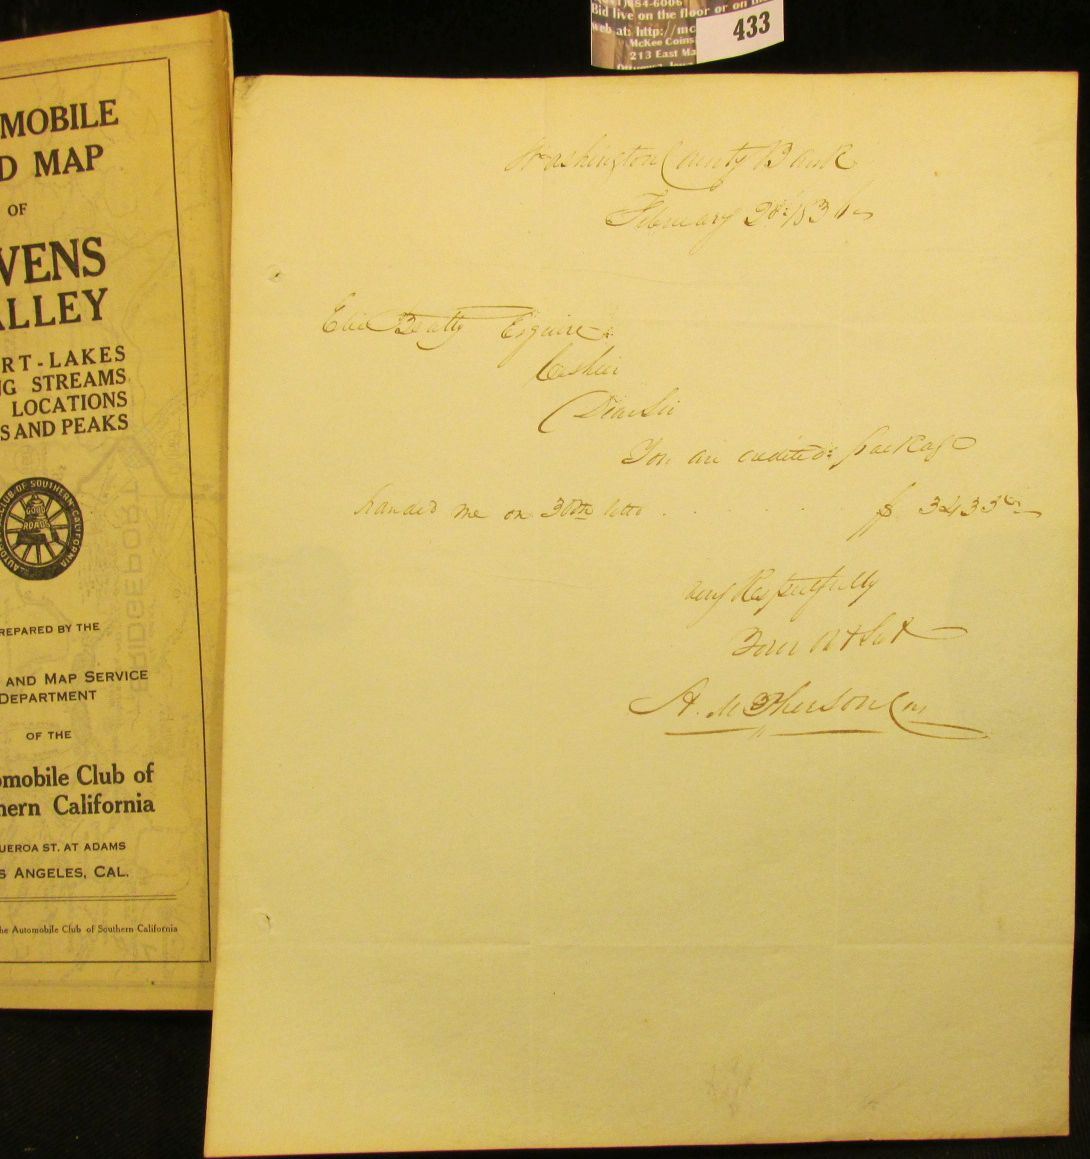 (1)684-6006
Bid live on the floor or on
web at: http://mc
McKee Coins
213 East Ma
Ottumwa, Iowa
433
MOBILE
D MAP
OF
VENS
LLEY
RT-LAKES
NG STREAMS
LOCATIONS
S AND PEAKS
AUTOMOBILE CLUB OF SOUTHERN CALIFORNIA
GOOD
ROADS
REPARED BY THE
AND MAP SERVICE
DEPARTMENT
OF THE
omobile Club of
hern California
UEROA ST. AT ADAMS
S ANGELES, CAL.
he Automobile Club of Southern California
Washington County Bank
February 2d 183
Elie Beatty Esquire
Cashier
Dear Sir
You are credited package
handed me on 30th
$ 3433
Very Respectfully
Your Obt Svt
H. McPherson Cas